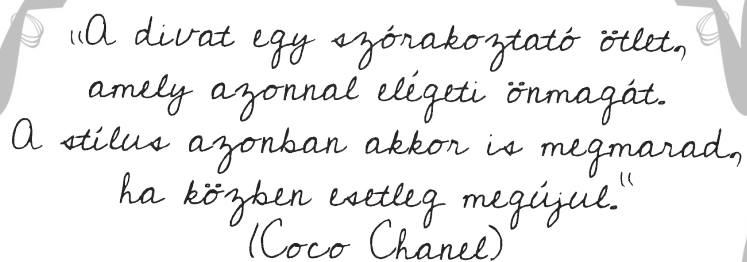 "A divat egy szórakoztató ötlet,
amely azonnal elégeti önmagát.
A stílus azonban akkor is megmarad,
ha közben esetleg megújul."
(Coco Chanel)